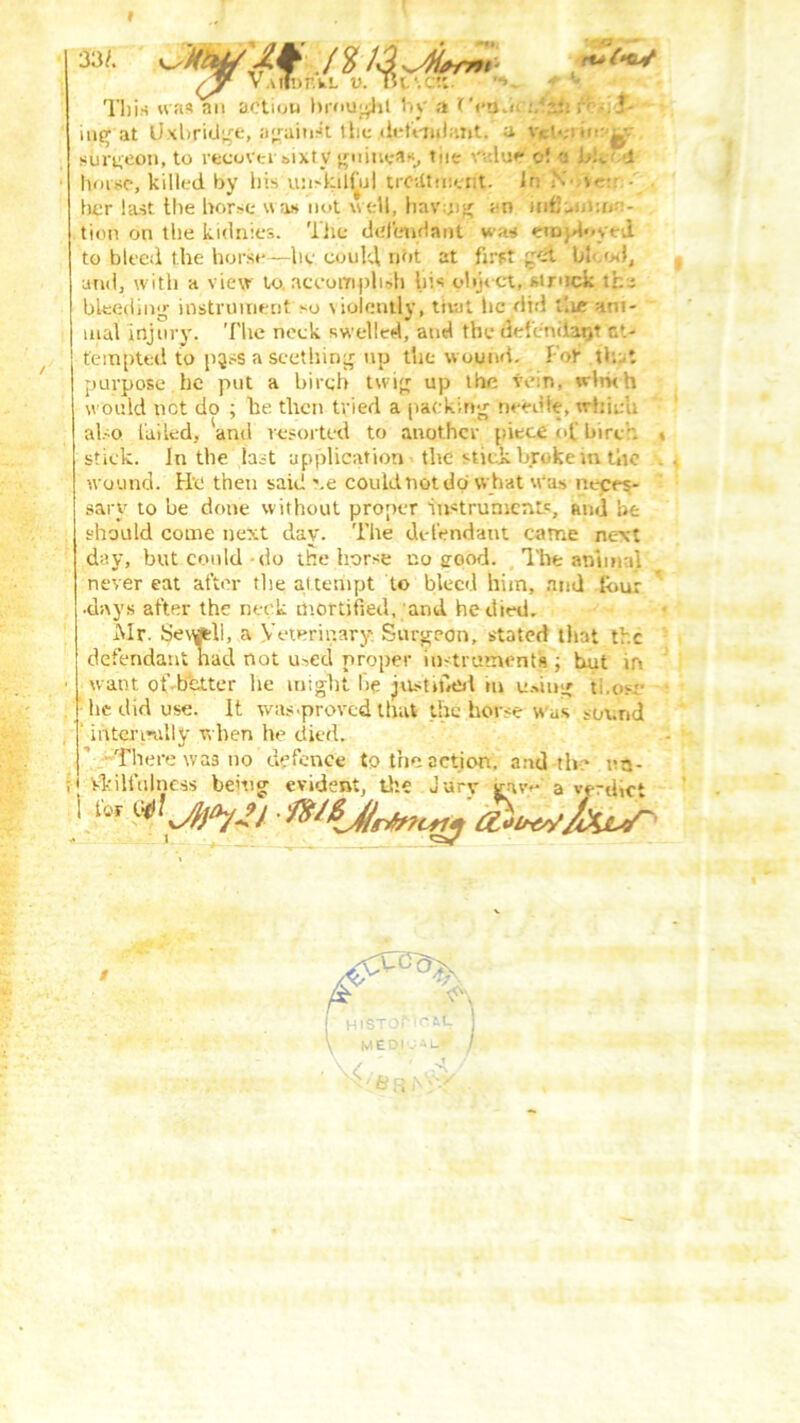 331. May 21 1813 Morng
V. 
This was an action brought by a
ing at Uxbridge, against the defendant, a
surgeon, to recover sixty guineas, the value of a
horse, killed by his unskilful treatment. In
ber last the horse was not well, having an
tion on the kidnies. The defendant was employed
to bleed the horse—he could not at first get blood,
and, with a view to accomplish his object, struck the
bleeding instrument so violently, that he did the ani-
mal injury. The neck swelled, and the defendant at-
tempted to pass a seething up the wound. For that
purpose he put a birch twig up the vein, which
would not do ; he then tried a packing needle, which
also failed, and resorted to another piece of birch
stick. In the last application the stick broke in the
wound. He then said he could not do what was neces-
sary to be done without proper instruments, and he
should come next day. The defendant came next
day, but could do the horse no good. The animal
never eat after the attempt to bleed him, and four
days after the neck mortified, and he died.
Mr. Sewell, a Veterinary Surgeon, stated that the
defendant had not used proper instruments ; but in
want of better he might be justified in using those
he did use. It was proved that the horse was sound
internally when he died.
There was no defence to the action, and the un-
skilfulness being evident, the Jury gave a verdict
for
WELLCOME
HISTORICAL
MEDICAL
LIBRARY